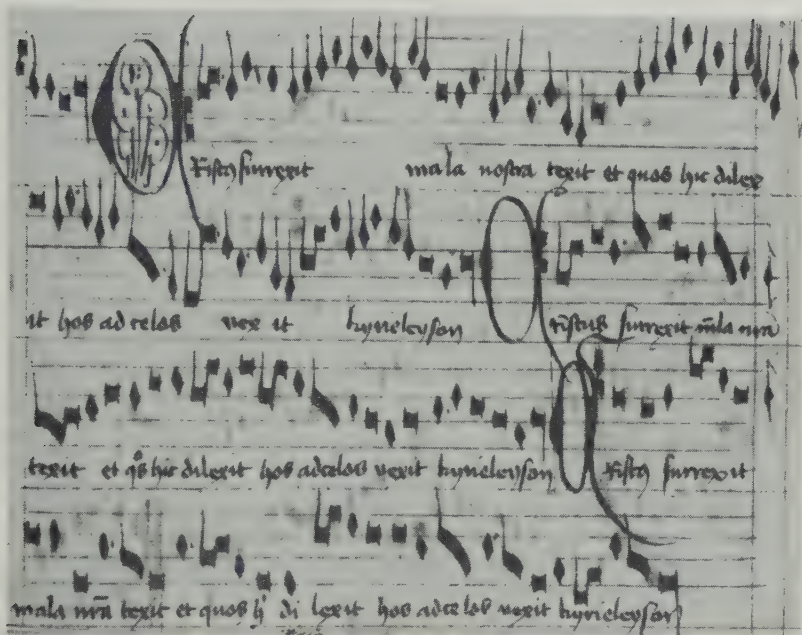 Ristꝰ surrexit mala nostra texit et quos hic dilex
it hos ad celos vex it kyrieleyson ristus surrexit m̄la nrā
texit et qͦs hic dilexit hos adcelos vexit kyrieleyson Ristꝰ surrexit
mala nrā texit et quos hͥ di lexit hos adcelos vexit kyrieleyson